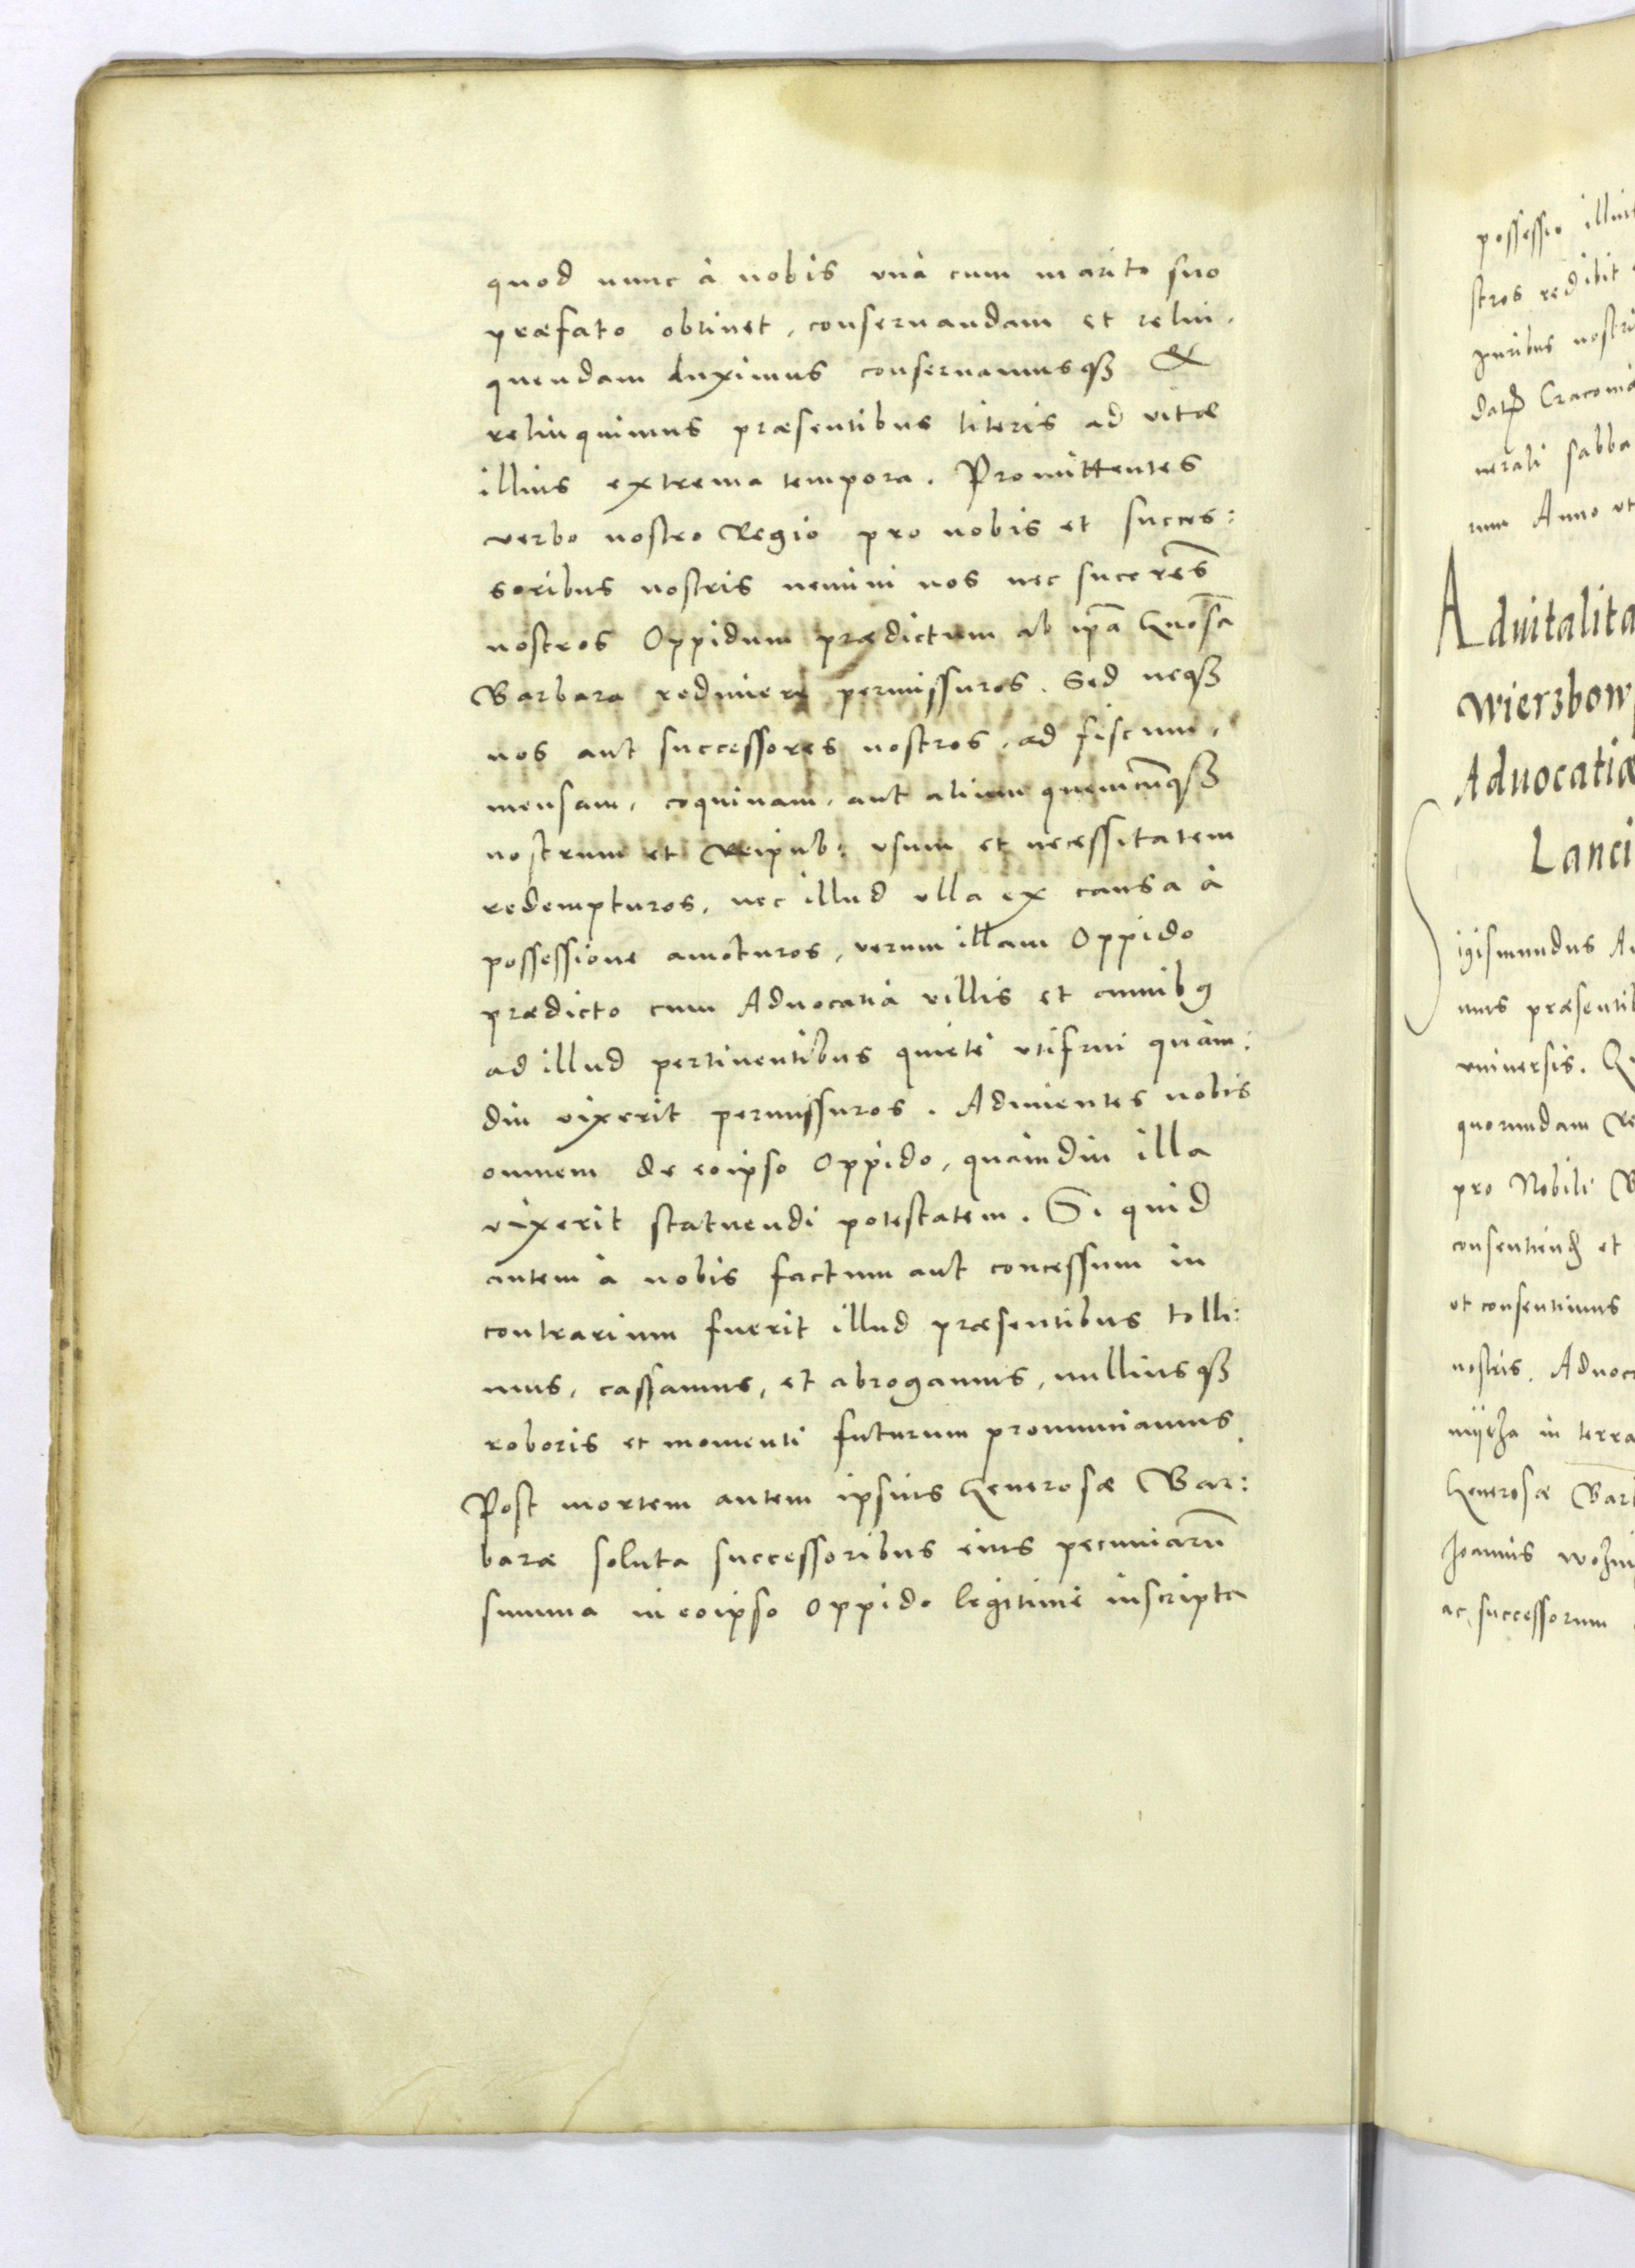 quod nunc à nobis vnà cum marito suo
præfato obtinet, conseruandam et relin,
quendam duximus conseruamusqʒ &
relinquimus præsentibus literis ad vitæ
illius extrema tempora. Promittentes
verbo nostro Regio pro nobis et succes:
soribus nostris nemini nos nec succres̃
nostros Oppidum prædictum ab ip̃a Gnosã
Barbara redimere permissuros. Sed neqʒ
nos aut successores nostros, ad fiscum,
mensam, coquinam, aut alium quemcũqʒ
nostrum et Reipub: vsum et necessitatem
redempturos, nec illud vlla ex causa à
possessione amoturos, verum illam Oppido
prædicto cum Aduocatia villis et omnibꝰ
ad illud pertinentibus quietè vtifrui quàm:
diu vixerit permissuros. Adimentes nobis
omnem de eoipso Oppido, quàmdiu illa
vixerit statuendi potestatem. Si quid
autem à nobis factum aut concessum in
contrarium fuerit illud præsentibus tolli:
mus, cassamus, et abrogamus, nulliusqʒ
roboris et momenti futurum pronunciamus.
Post mortem autem ipsius Generosæ Bar:
baræ soluta successoribus eius pecuniarũ
summa in eoipso Oppido legitimè inscripta
possessio
stros redibit
iuribus nostri
Cracouiæ
sabba
rum Anno vt
Aduitalita
Wierzbow
Aduocatiæ
Lanci
Sigismundus Au
mus præsentib
vniuersis. Q
quorumdam Re
pro Nobili B
et
vt consentimus
nostris. Aduoc
in terra
Generosæ Barb
Joannis
ac successorum